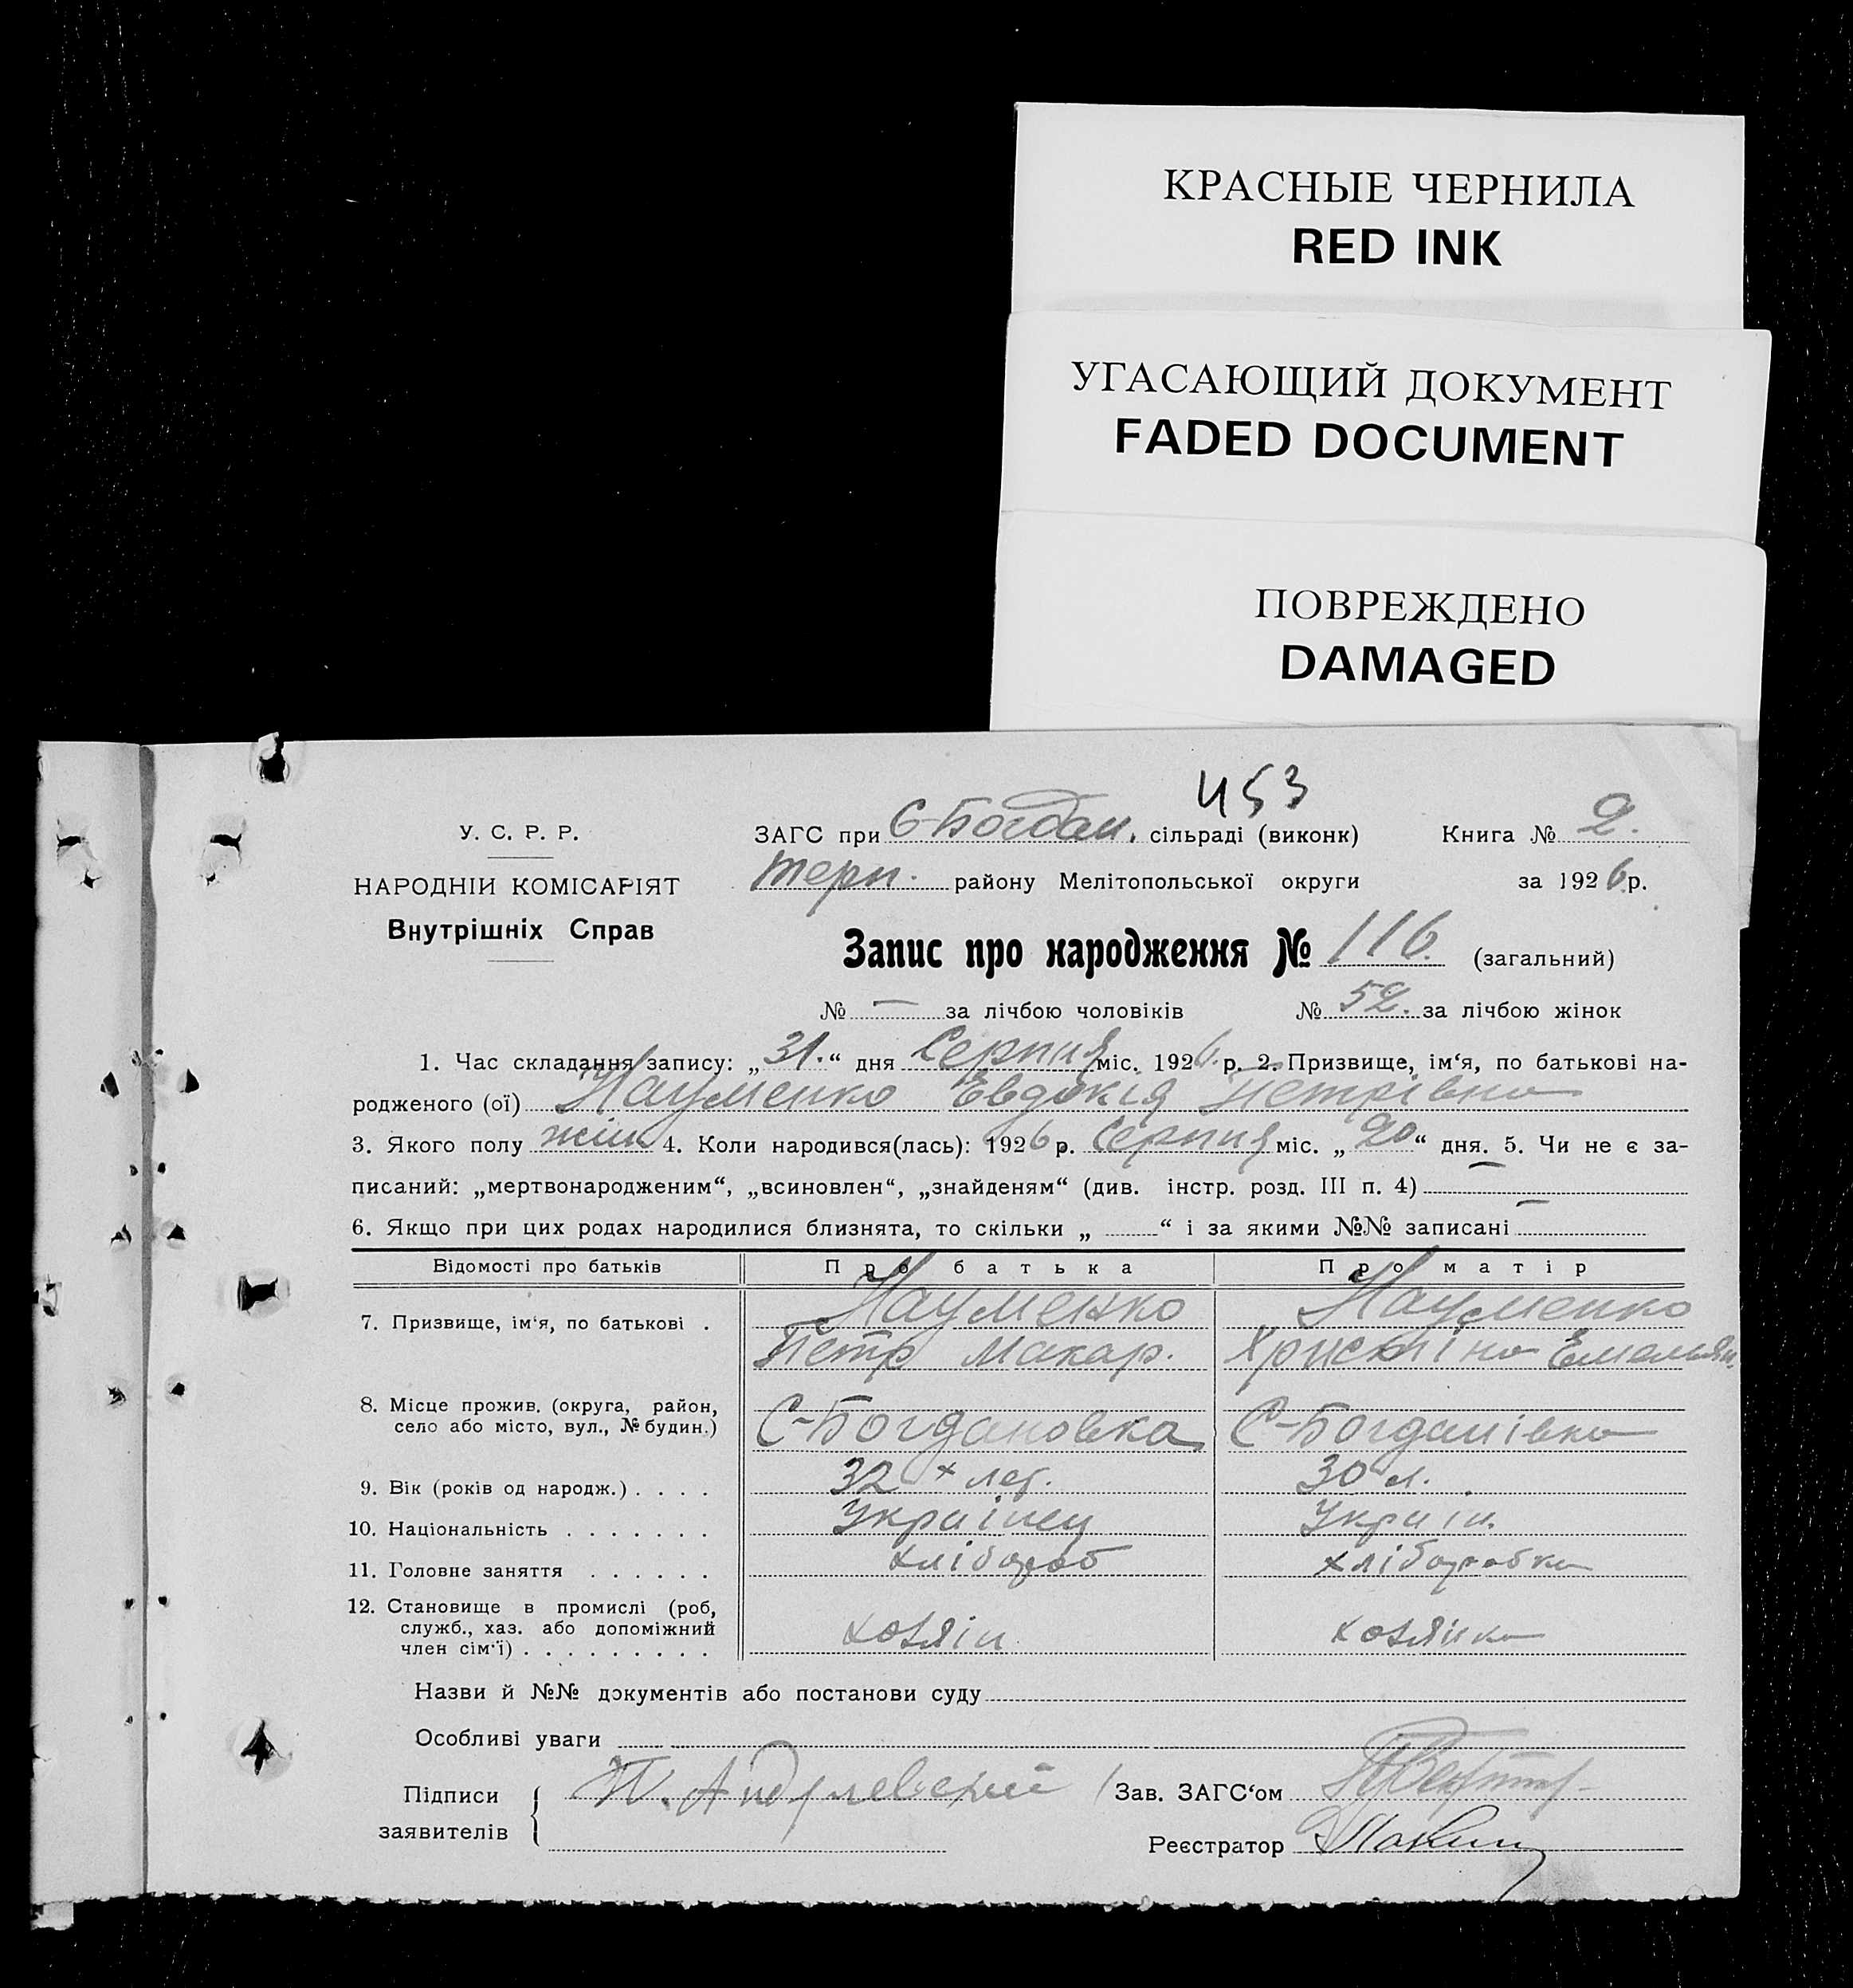 КРАСНЫЕ ЧЕРНИЛА
RED INK
УГАСАЮЩИЙ ДОКУМЕНТ
FADED DOCUMENT
ПОВРЕЖДЕНО
DAMAGED
453
У. С. Р. Р.
НАРОДНІЙ КОМІСАРІЯТ
Внутрішніх Справ
ЗАГС при С-Богдан. сільраді (виконк) Книга № 2.
Терп. району Мелітопольської округи за 1926 р.
Запис про народження № 116. (загальний)
№ — за лічбою чоловіків № 52. за лічбою жінок
1. Час складання запису: „31.“ дня Серпня міс. 1926. р. 2. Призвище, ім‘я, по батькові на-
родженого (ої) Науменко Евдокія Петрівна
3. Якого полу жін 4. Коли народився(лась): 1926 р. Серпня міс. „20“ дня. 5. Чи не є за-
писаний: „мертвонародженим“, „всиновлен“, „знайденям“ (див. інстр. розд. III п. 4) —
6. Якщо при цих родах народилися близнята, то скільки „ “ і за якими №№ записані —
Відомості про батьків Про батька Про матір
7. Призвище, ім‘я, по батькові . Науменко Науменко
Петр Макар. Христіна Емельян.
8. Місце прожив. (округа, район,
село або місто, вул., № будин.) С-Богдановка С-Богданівка
9. Вік (років од народж.) . . . . 32 х лет. 30 л.
10. Національність . . . . . . . Українец Україн.
11. Головне заняття . . . . . . хлібороб хліборобка
12. Становище в промислі (роб,
служб., хаз. або допоміжний
член сім‘ї) . . . . . . . . . хозяін хозяйка
Назви й №№ документів або постанови суду
Особливі уваги
Підписи
заявителів
Зав. ЗАГС‘ом
Реєстратор